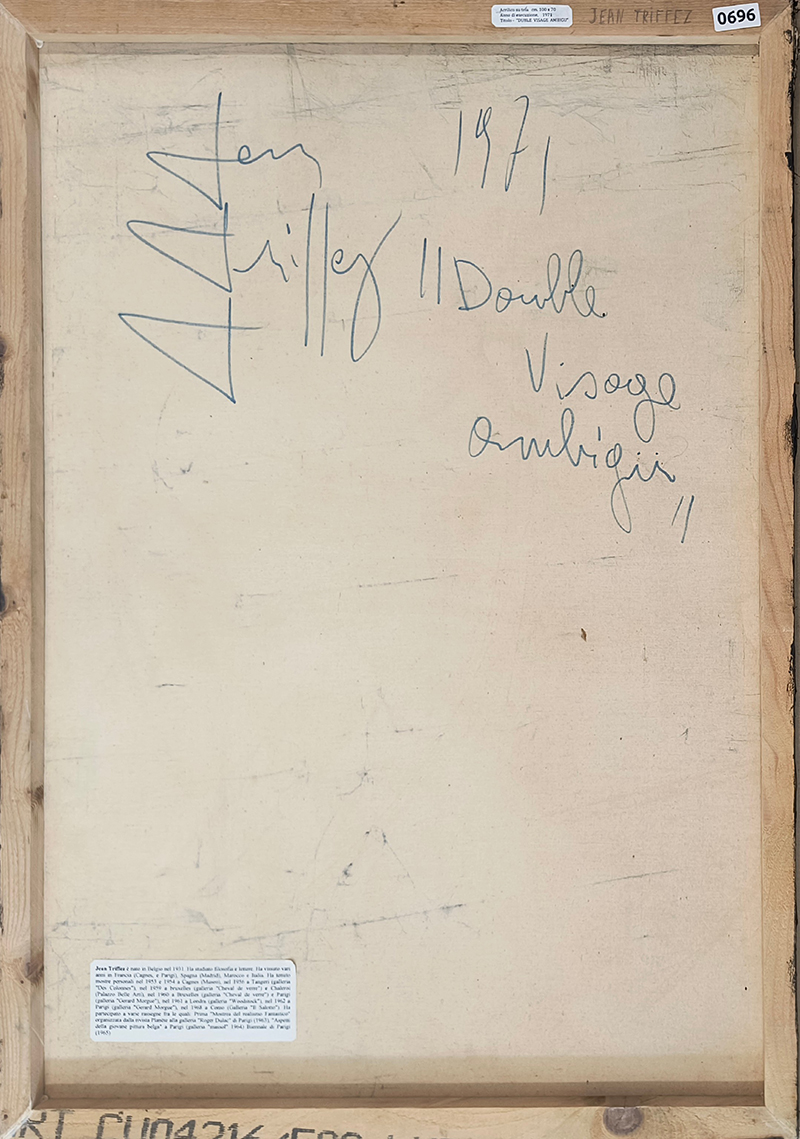 Acrilico su tela cm. 100 x 70
Anno di esecuzione, 1971
Titolo - "DUBLE VISAGE AMBIGU"
JEAN TRIFFEZ
0696
Jean
Triffez
1971
"Double
Visage
ambigu
"
Jean Triffez è nato in Belgio nel 1931. Ha studiato filosofia e lettere. Ha vissuto vari
anni in Francia (Cagnes, e Parigi), Spagna (Madrid), Marocco e Italia. Ha tenuto
mostre personali nel 1953 e 1954 a Cagnes (Museo), nel 1956 a Tangeri (galleria
"Des Colonnes"), nel 1959 a bruxelles (galleria "Cheval de verre") a Chaleroi
(Palazzo Belle Arti), nel 1960 a Bruxelles (galleria "Cheval de verre") e Parigi
(galleria "Gerard Morgue"), nel 1961 a Londra (galleria "Woodstock"), nel 1962 a
Parigi (galleria "Gerard Morgue"), nel 1968 a Como (Galleria "Il Salotto"). Ha
partecipato a varie rassegne fra le quali: Prima "Mostra del realismo Fantastico"
organizzata dalla rivista Planète alla galleria "Roger Dulac" di Parigi (1963), "Aspetti
della giovane pittura belga" a Parigi (galleria 1964) Biennale di Parigi
(1965)